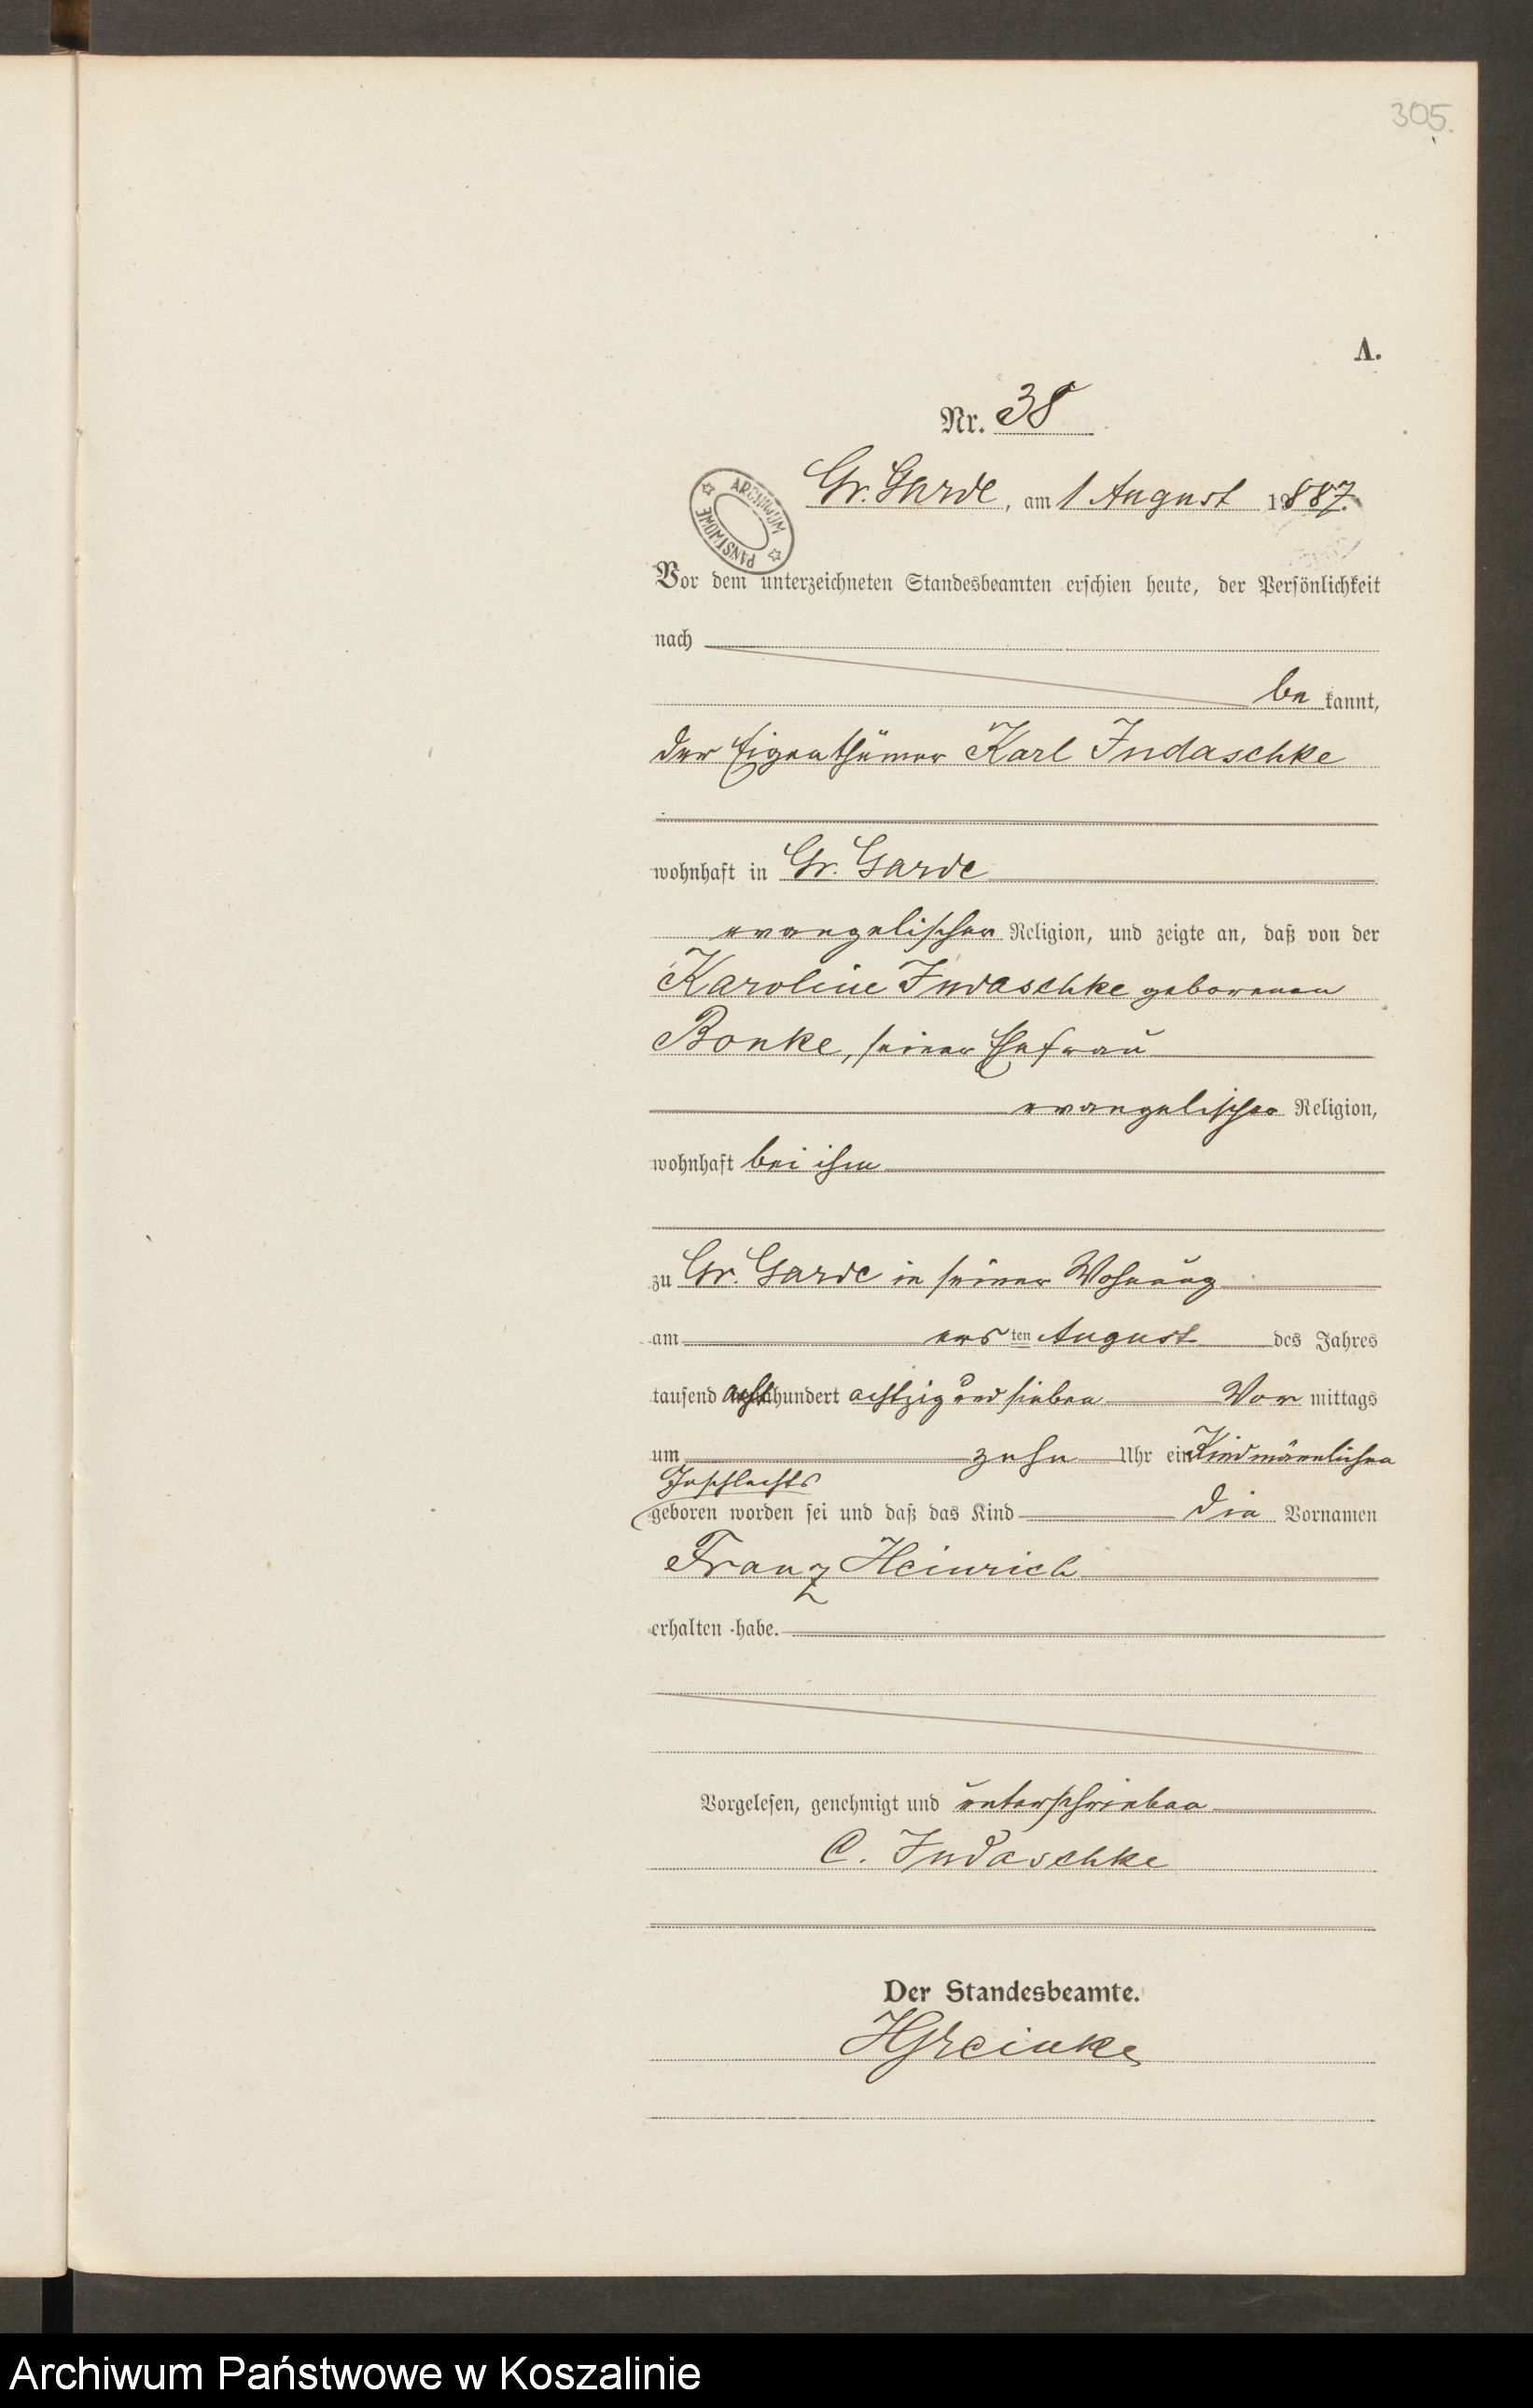 305.
A.
Nr. 38
Gr. Garde, am 1 August 1887.
ARCHIWUM PAŃSTWOWE
Vor dem unterzeichneten Standesbeamten erschien heute, der Persönlichkeit
nach
be kannt,
der Eigenthümer Karl Indaschke
wohnhaft in Gr. Garde
evangelischer Religion, und zeigte an, daß von der
Karoline Indaschke geborenen
Bonke, seiner Ehefrau
evangelischer Religion,
wohnhaft bei ihm
zu Gr. Garde in seiner Wohnung
am ers ten August des Jahres
tausend acht hundert achtzig und sieben Vor mittags
um zehn Uhr ein Kind männlichen
Geschlechts
geboren worden sei und daß das Kind die Vornamen
Franz Heinrich
erhalten habe.
Vorgelesen, genehmigt und unterschrieben
C. Indaschke
Der Standesbeamte.
Archiwum Państwowe w Koszalinie